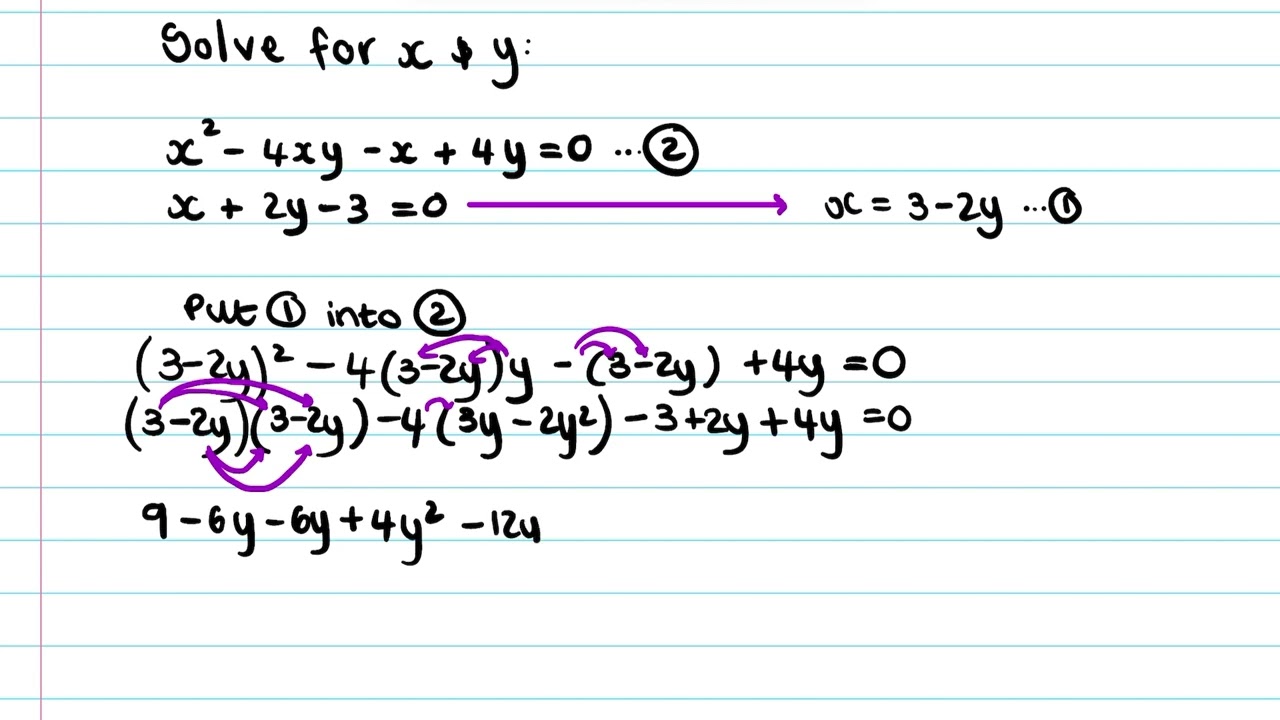 Solve for x & y:
x² - 4xy - x + 4y = 0 ...②
x + 2y - 3 = 0 → x = 3 - 2y ...①
Put ① into ②
(3-2y)² - 4(3-2y)y - (3-2y) + 4y = 0
(3-2y)(3-2y) - 4(3y - 2y²) - 3 + 2y + 4y = 0
9 - 6y - 6y + 4y² - 12y